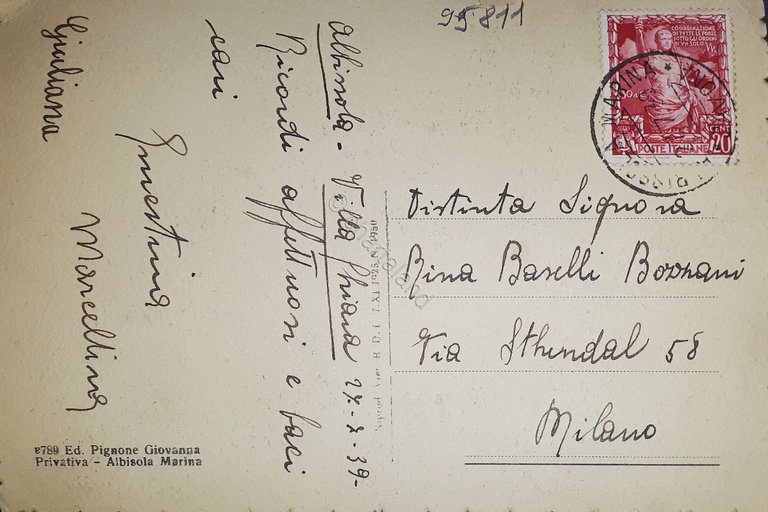 95811
COORDINAZIONE
DI TUTTE LE FORZE
SOTTO GLI ORDINI
DI UN SOLO
CENT 20
POSTE ITALIANE
MARINA
Albissola - Villa Chiara 27-7-39-
Ricordi affettuosi e baci
cari
Giuliana
Ernestina
Marcellina
Distinta Signora
Rina Baselli Bozzani
Via Sthendal 58
Milano
e789 Ed. Pignone Giovanna
Privativa - Albisola Marina